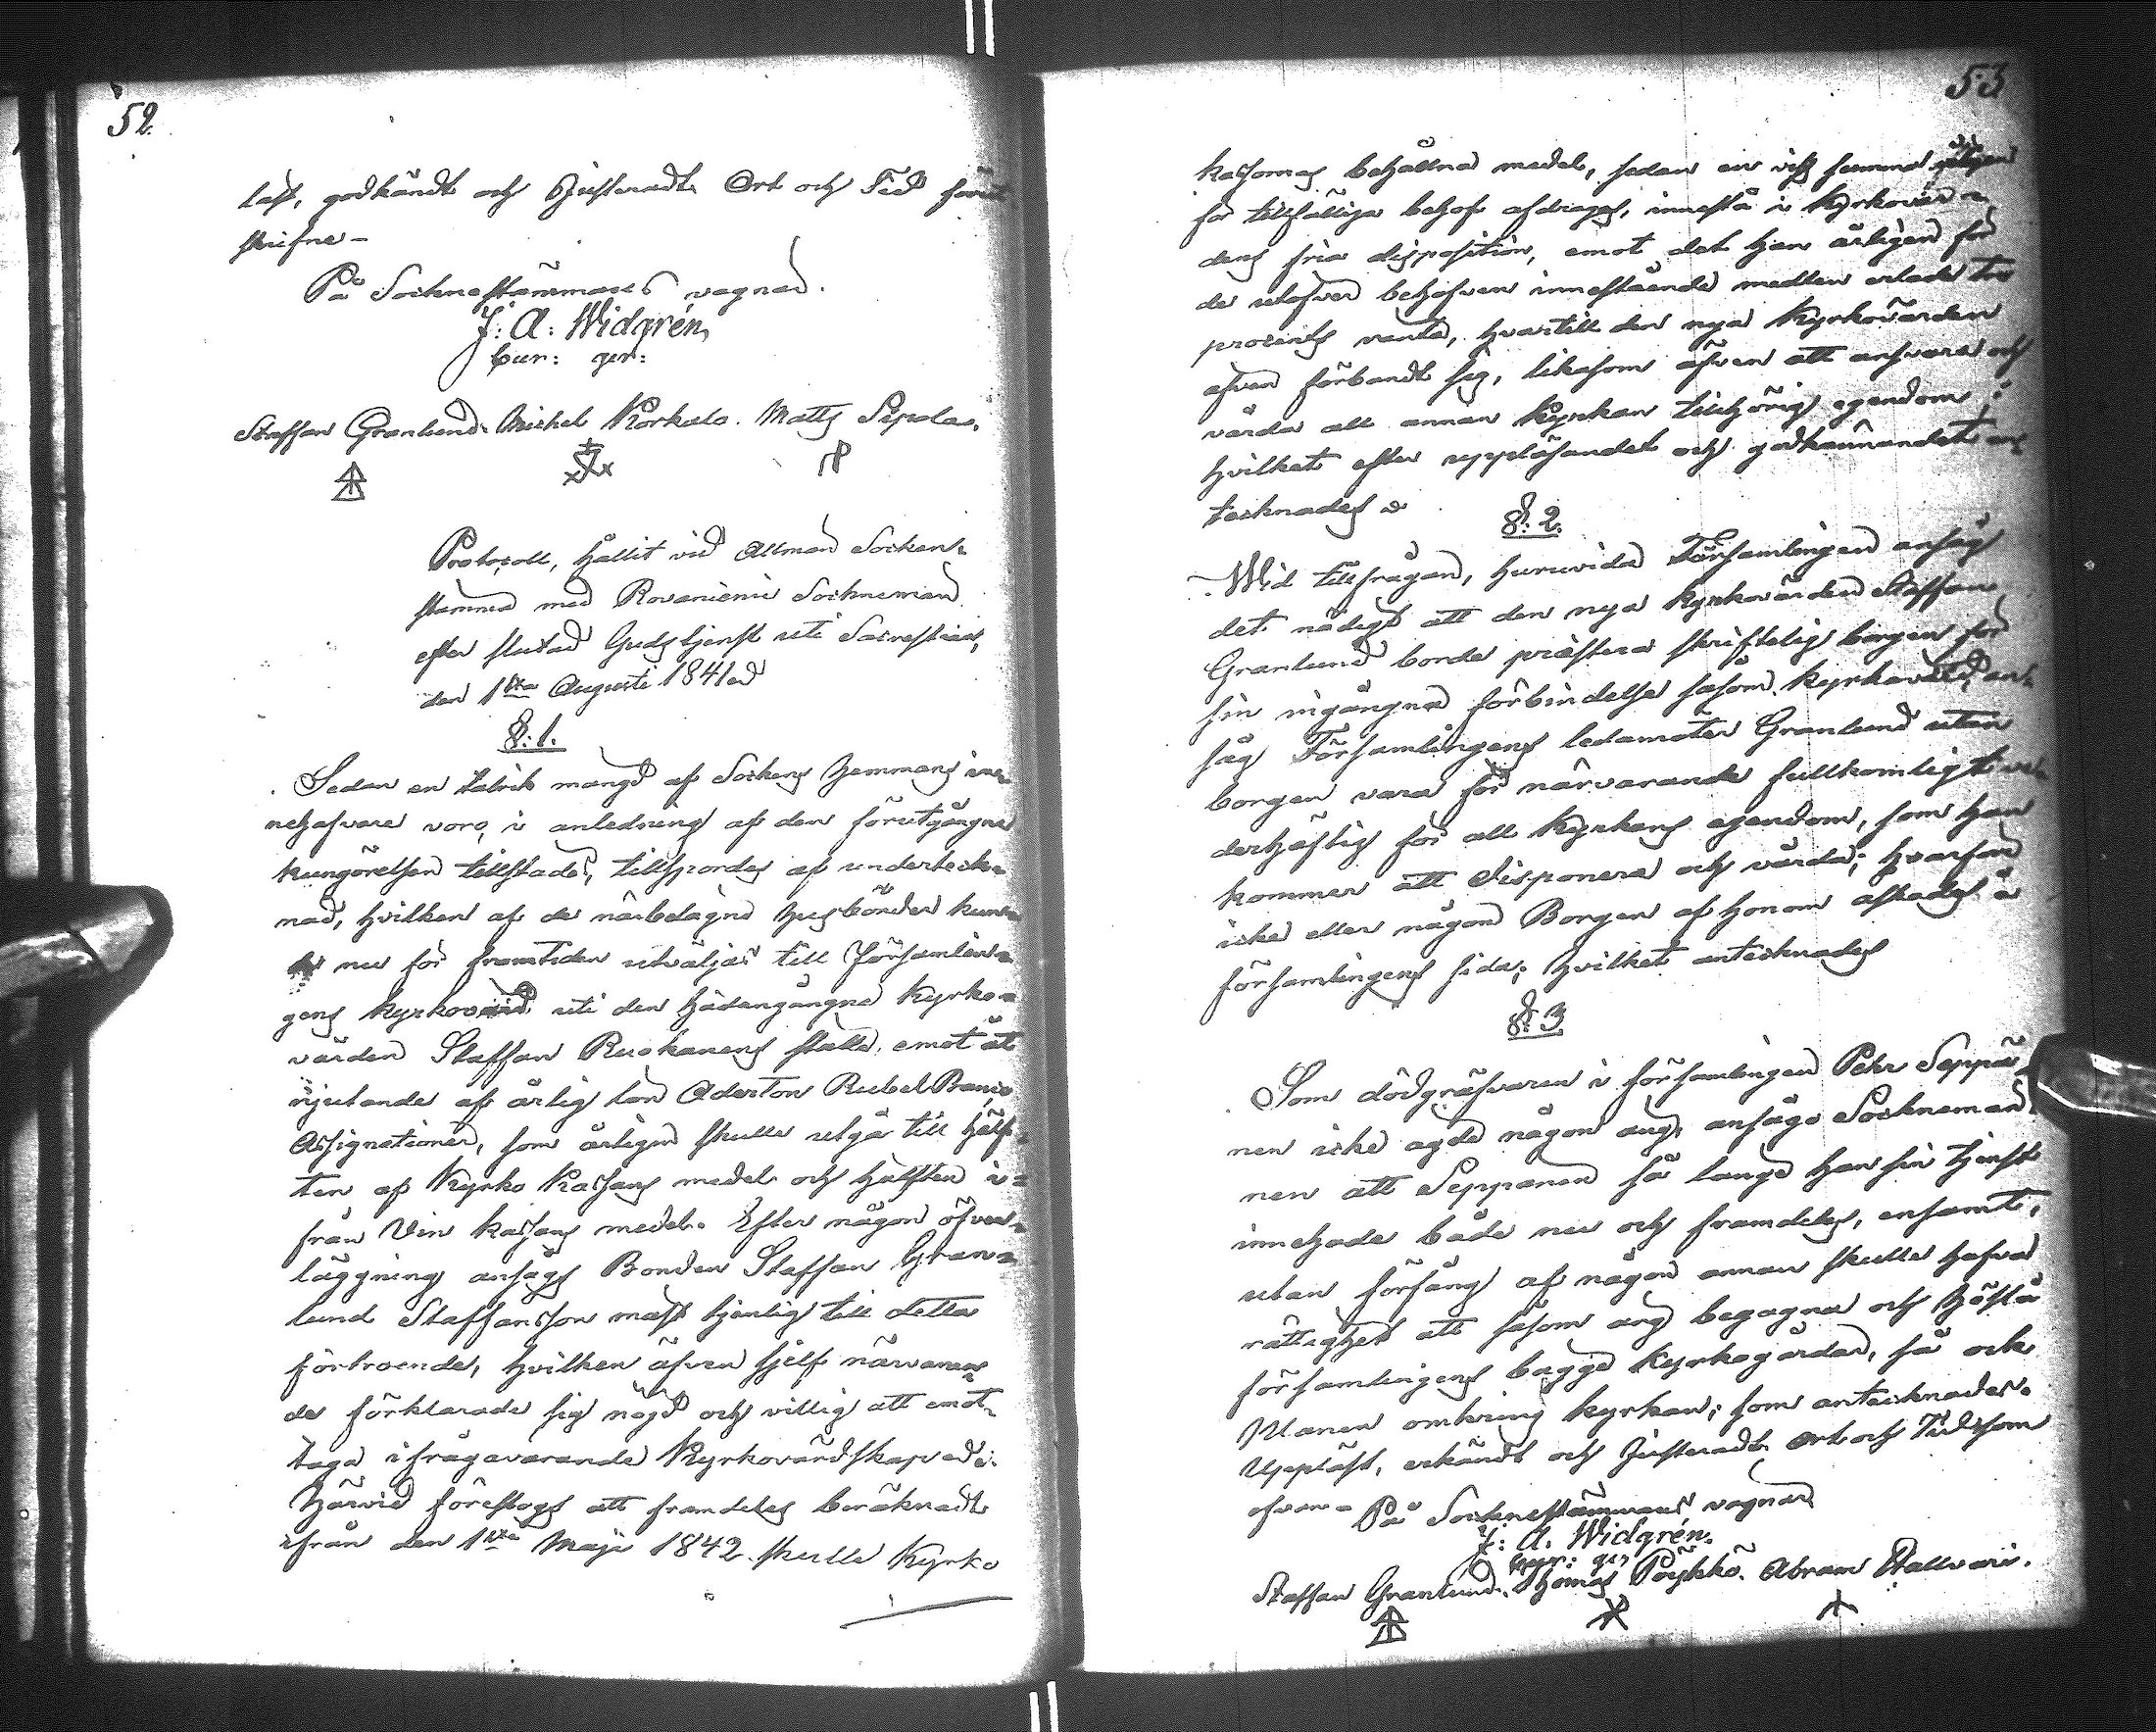 52.
läst, godkändt och Justeradt. Ort och Tid förut
skrifne –
På Socknestämmans vägnar.
J: A: Widgrén,
Cur: ger:
Staffan Granlund. Michel Korkalo. Matts Sipola.
Protocoll, hållit vid Allmän Socken-
stämma med Rovaniemi Sockneman
efter slutad Gudstjenst uti Sacrestian,
den 1sta Augusti 1841
§: 1.
Sedan en talrik mängd af Sockens Hemmans in-
nehafvare voro, i anledning af den förutgångne
kungörelsen tillstädes, tillspordes af underteck-
nad, hvilken af de närbelägne husbönder kun-
nu för framtiden utväljas till Församlin-
gens Kyrkovärd uti den hädangångne Kyrko-
värden Staffan Ruokanens ställe, emot åt
njutande af årlig lön Aderton Rubel Banco
Assignationer, som årligen skulle utgå till hälf-
ten af Kyrko Kassans medel och hälften i-
från Vin kassans medel. Efter någon öfver-
läggning ansågs Bonden Staffan Gran-
lund Staffansson mäst tjenlig till detta
förtroende, hvilken äfven sjelf närvaran-
de förklarade sig nögd och villig att emot-
taga ifrågavarande Kyrkovärdskapet.
Härvid föreslogs att framdeles beräknadt
ifrån den 1sta Maji 1842. skulle Kyrko
53
kassornas behållna medel, sedan en viss summa årligen
för tillfälliga behof afdrages, innestå i Kyrkovär-
dens fria disposition, emot det han årligen för
de utöfver behofven innestående medlen erlade tre
procents ränta, hvartill den nya Kyrkovärden
äfven förbandt sig, likasom äfven att ansvara och
vårda all annan Kyrkan tillhörig egendom;
hvilket efter uppläsandet och godkännandet an-
tecknades
§: 2.
Wid tillfrågan, huruvida Församlingen ansåg
det nödigt att den nya Kyrkovärden Staffan
Granlund borde prästera skriftelig borgen för
sin ingångna förbindelse såsom Kyrkovärd, an-
såg Församlingens ledamöter Granlund utan
borgen vara för närvarande fullkomligt ve-
derhäftig för all Kyrkans egendom, som han
kommer att disponera och vårda; hvarföre
icke eller någon Borgen af honom äskades å
församlingens sida; hvilket antecknades
§: 3
Som dödgräfvaren i församlingen Pehr Seppä-
nen icke ägde någon äng, ansågo Socknemän-
nen att Seppänen så länge han sin tjenst
innehade både nu och framdeles, ensamt,
utan förfång af någon annan skulle hafva
rättighet att såsom äng begagna och höslå
församlingens bägge Kyrkogårdar, så ock
Planen omkring Kyrkan; som antecknades.
Uppläst, erkändt och Justeradt, Ort och Tid som
ofvan – På Socknestämmans vägnar
J: A. Widgrén.
Cur: ger
Staffan Granlund. Thomas Pöykkö. Abram Stallvari.